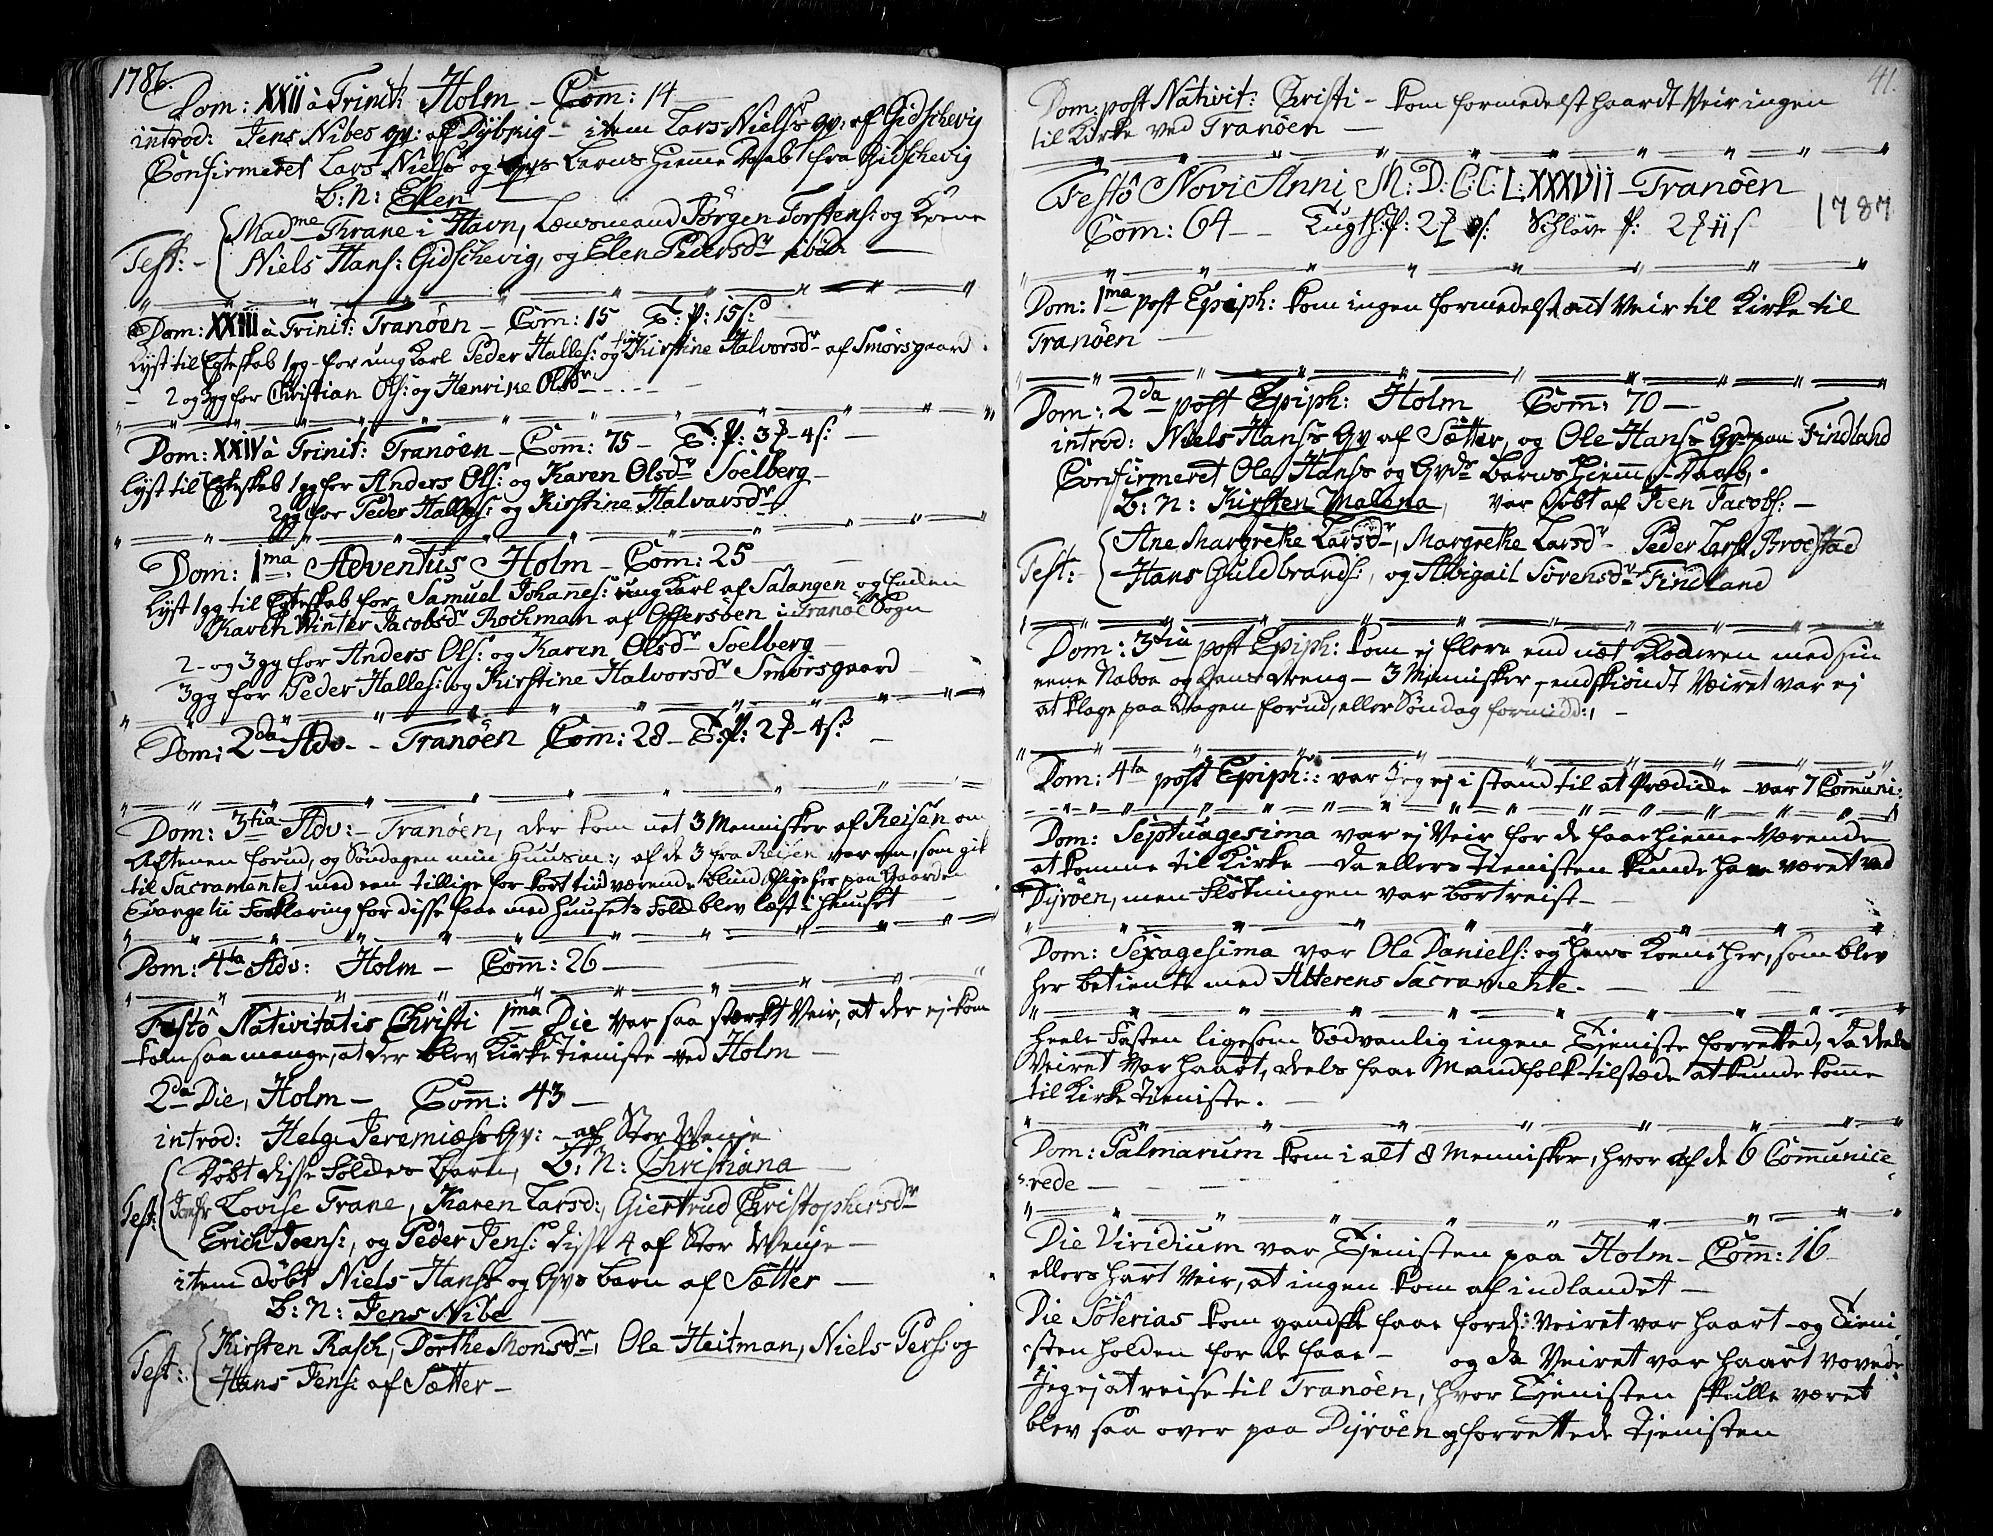 1786.
Dom: XXII à Trinit: Holm - Com: 14
introd: Jens Nibes qv: af Dybvig - item Lars Nielss qv. af Gidschevig
Confirmeret Lars Niels: og qvs barns hiemme Daab fra Gidschevig
B: N: Elen
Test: - Mad^me Krane i Havn, Lænsmand Jørgen Torstens: og Kone
Niels Hans: Gidschevig, og Elen Pedersd^r ibid:
Dom: XXIII à Trinit: Tranöen - Com: 15 T: P: 15 s:
Lyst til Egteskab 1 gg - for ung Karl Peder Halles: og Kirstine Halvorsd^r af Smörsgaard
- 2 og 3 gg for Christian Ols: og Henrike Olsd^r
Dom: XXIV à Trinit: Tranöen - Com: 75 - T: P: 3 - 4 s: -
Lyst til Egteskab 1 gg for Anders Ols: og Karen Olsd^r Soelberg -
2 gg for Peder Halles: og Kirstine Halvarsd^r
Dom: 1^ma Adventus Holm - Com: 25
Lyst 1 gg til Egteskab for Samuel Johanes: ung Karl af Salangen og Enken
Karen Winter Jacobsd^r Rochman af Offersöen i Tranöe Sogn
2 - og 3 gg for Anders Ols: og Karen Olsd^r Soelberg -
3 gg for Peder Halles: og Kirstine Halvorsd^r Smörsgaard
Dom: 2^da Adv - - Tranöen Com: 28 - T: P: 2 - 4 s:
Dom: 3^tia Adv: - Tranöen, der kom net 3 Mennisker af Reisen om
Aftenen forud, og Søndagen min Huusm:, af de 3 fra Reisen var en, som gik
til Sacramentet med een tillige for kort tiid værende blind Pige her paa Gaarden
Evangelii Forklaring for disse faae med Huusets Folk blev læst i Huuset
Dom: 4^ta Adv: Holm - Com: 26 -
Festô Nativitatis Christi 1^ma Die var saa stærkt Veir, at der ej kom
folk saa mange, at der blev Kirke Tieniste ved Holm -
2^da Die, Holm - Com: 43 -
introd: Helge Jeremiæs: qv: - af Stor Wenje
Døbt disse Folkes Barn, B: N: Christiana
Test: Jomfr Lovise Krane, Karen Larsd:, Giertrud Christophersd^r
Erich Joens:, og Peder Jens: disse 4 af Stor Wenje -
item døbt Niels Hans: og qvs barn af Sætter -
B: N: Jens Nibe
Test: Kirsten Rasch, Dorthe Monsd^r, Ole Heitman, Niels Pers: og
Hans Jens: af Sætter -
41.
Dom: post Nativit: Christi - kom formedelst haardt Veir ingen
til Kirke ved Tranöen -
Festô Novi Anni M: D: C: C: L: XXXVII - Tranöen
1787
Com: 64 - - Tugth: P: 2 s: Schläve P: 2 11 s
Dom: 1^ma post Epiph: kom ingen formedelst ont Veir til Kirke til
Tranöen
Dom: 2^da post Epiph: Holm Com: 70 -
introd: Niels Hanss qv af Sætter, og Ole Hanss qv paa Findland
Confirmeret Ole Hanss og qvs Barns Hiemme-Daab.
B: N: Kirsten Malena, var Døbt af Iven Jacobs: -
Test: - Ane Margrethe Larsd^r, Margrethe Larsd^r - Peder Lars: Broestad
Hans Guldbrands:, og Abigail Sörensd^r Findland
Dom: 3^tia post Epiph: kom ej flere end net Klokeren med sin
eene Naboe og hans Dreng - 3 Mennisker, endskiöndt Veiret var ej
at klage paa Dagen forud, eller Søndag formidd:, -
Dom: 4^ta post Epiph: var Jeg ej i stand til at Prædicke - var 7 Comuni:
Dom: Septuagesima var ej Veir for de faae hiemme Værende
at komme til Kirke - da ellers Tienisten kunde have været ved
Dyröen, men Fløtningen var bortreist -
Dom: Sexagesima var Ole Daniels: og hans Kone her, som blev
her betiente med Alterens Sacramente. -
Heele Fasten ligesom Sædvanlig ingen Tjeniste forretted, da deels
Veiret var haart, deels faae Mandfolk tilstæde at kunde kome
til Kirke Tieniste. -
Dom: Palmarum kom i alt 8 Mennisker, hvor af de 6 Comunice
rede -
Die Viridium var Tjenisten paa Holm - Com: 16
ellers hart Veir, at ingen kom af indlandet -
Die Sôterias kom gandske faae fordi Veiret var haart - og Tieni
sten holden for de faae - og da Veiret var haart vovede
Jeg ej at reise til Tranöen, hvor Tjenisten skulle været
blev saa over paa Dyröen og forrettede Tjenisten